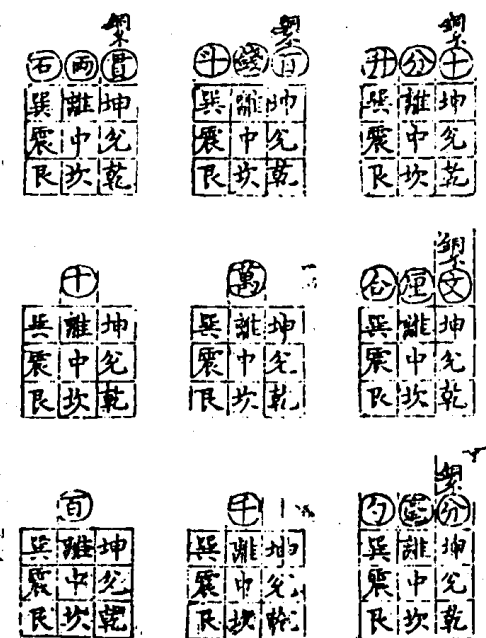 石 兩 貫
巽 離 坤
震 中 兌
艮 坎 乾
斗 錢 百
巽 離 坤
震 中 兌
艮 坎 乾
升 分 十
巽 離 坤
震 中 兌
艮 坎 乾
十
巽 離 坤
震 中 兌
艮 坎 乾
萬
巽 離 坤
震 中 兌
艮 坎 乾
合 厘 文
巽 離 坤
震 中 兌
艮 坎 乾
百
巽 離 坤
震 中 兌
艮 坎 乾
千
巽 離 坤
震 中 兌
艮 坎 乾
勺 分
巽 離 坤
震 中 兌
艮 坎 乾